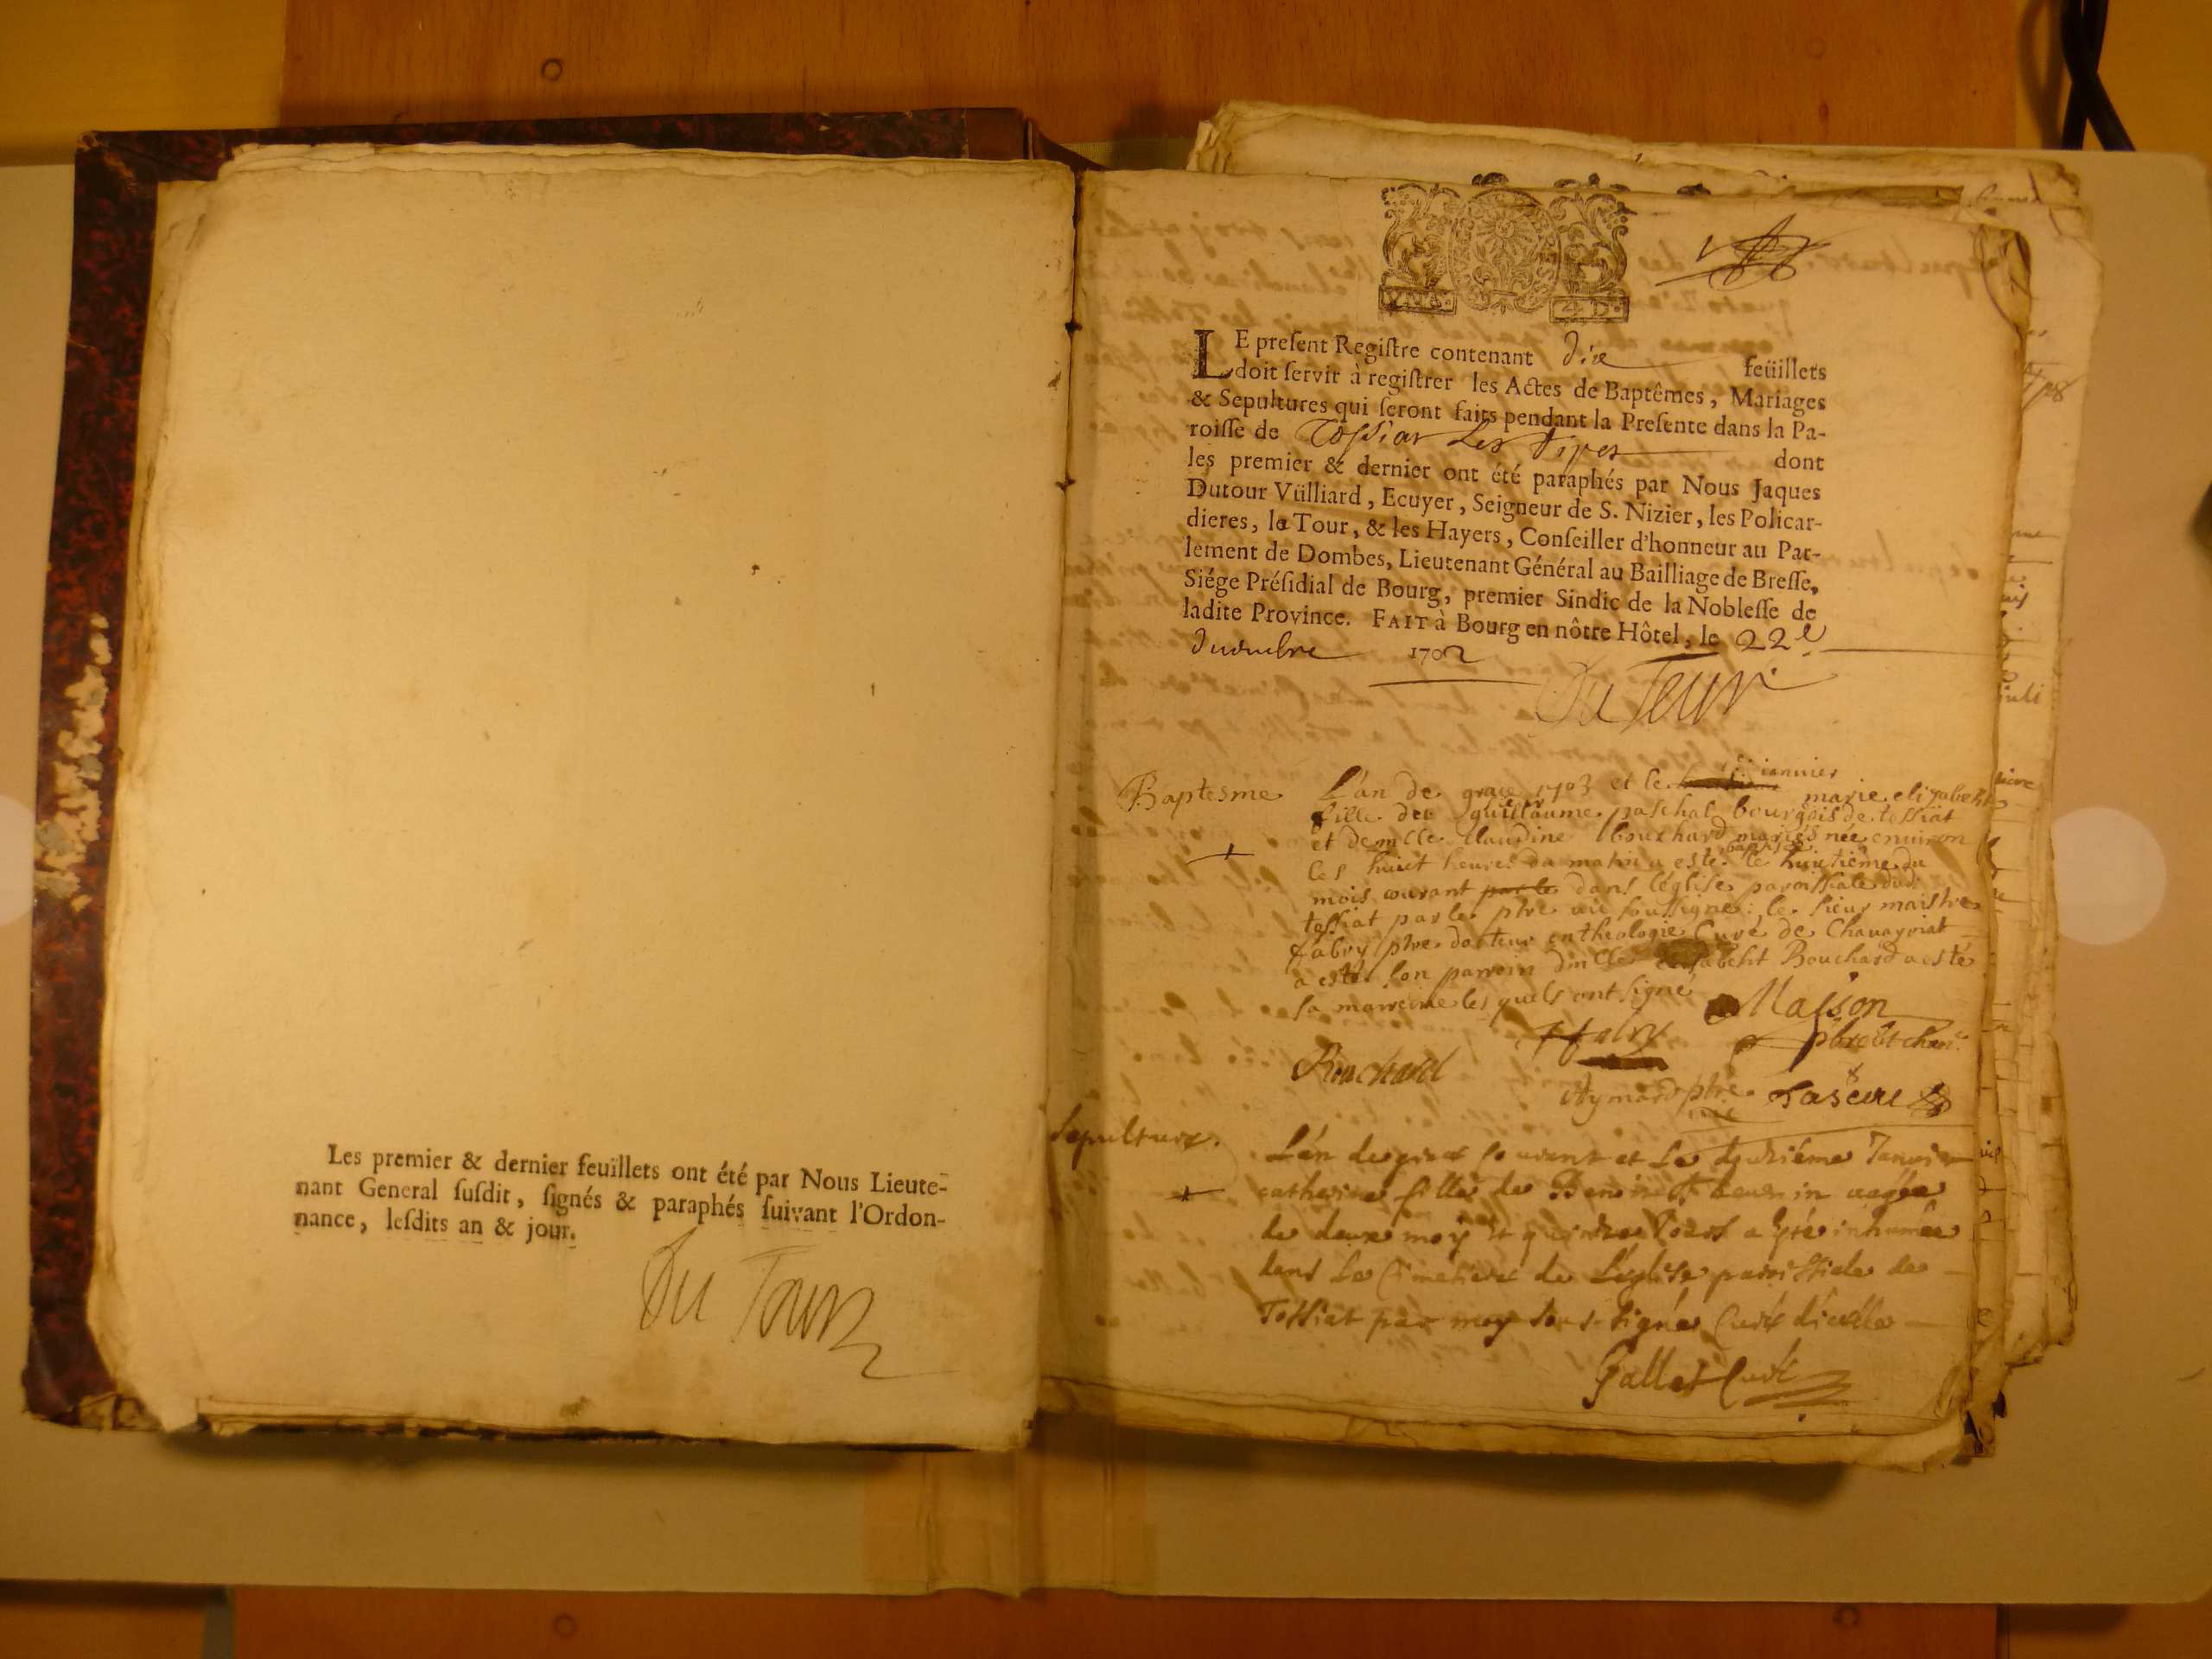 Les premier & dernier feuillets ont été par Nous Lieute-
nant General ſuſdit, ſignés & paraphés ſuivant l'Ordon-
nance, leſdits an & jour.
Du Tour
LE preſent Regiſtre contenant dix feüillets
doit ſervir à regiſtrer les Actes de Baptêmes, Mariages
& Sepultures qui ſeront faits pendant la Preſente dans la Pa-
roiſſe de Toſſiat dont
les premier & dernier ont été paraphés par Nous Jaques
Dutour Vülliard, Ecuyer, Seigneur de S. Nizier, les Policar-
dieres, la Tour, & les Hayers, Conſeiller d'honneur au Par-
lement de Dombes, Lieutenant Général au Bailliage de Breſſe,
Siége Préſidial de Bourg, premier Sindic de la Nobleſſe de
ladite Province. FAIT à Bourg en nôtre Hôtel, le 22e
1702
Du Tour
Baptesme L'an de grace 1703 et le ianuier marie elizabeht
fille de guillaume paſchal bourgois de toſſiat
et de mlle claudine bouchard mariés née enuiron
les huict heures du matin a esté baptisée le huictiéme du
mois courant dans l'égliſe paroiſſiale dud
toſſiat par le ptre ſouſſigné: le ſieur maistre
fabry ptre docteur en theologie Curé de Chauagniat
a esté ſon parrein dmlle Bouchard a esté
ſa marreine les quels ont ſigné Maſson
Bouchard
Aymard ptre
Sepulture. L'an de grace courant et le Januier
catherine fille de aagée
de deux moys et jours a esté inhumée
dans le cimetiere de l'égliſe paroiſſiale de
Toſſiat par moy ſousſigné Curé d'icelle
Gallet Curé